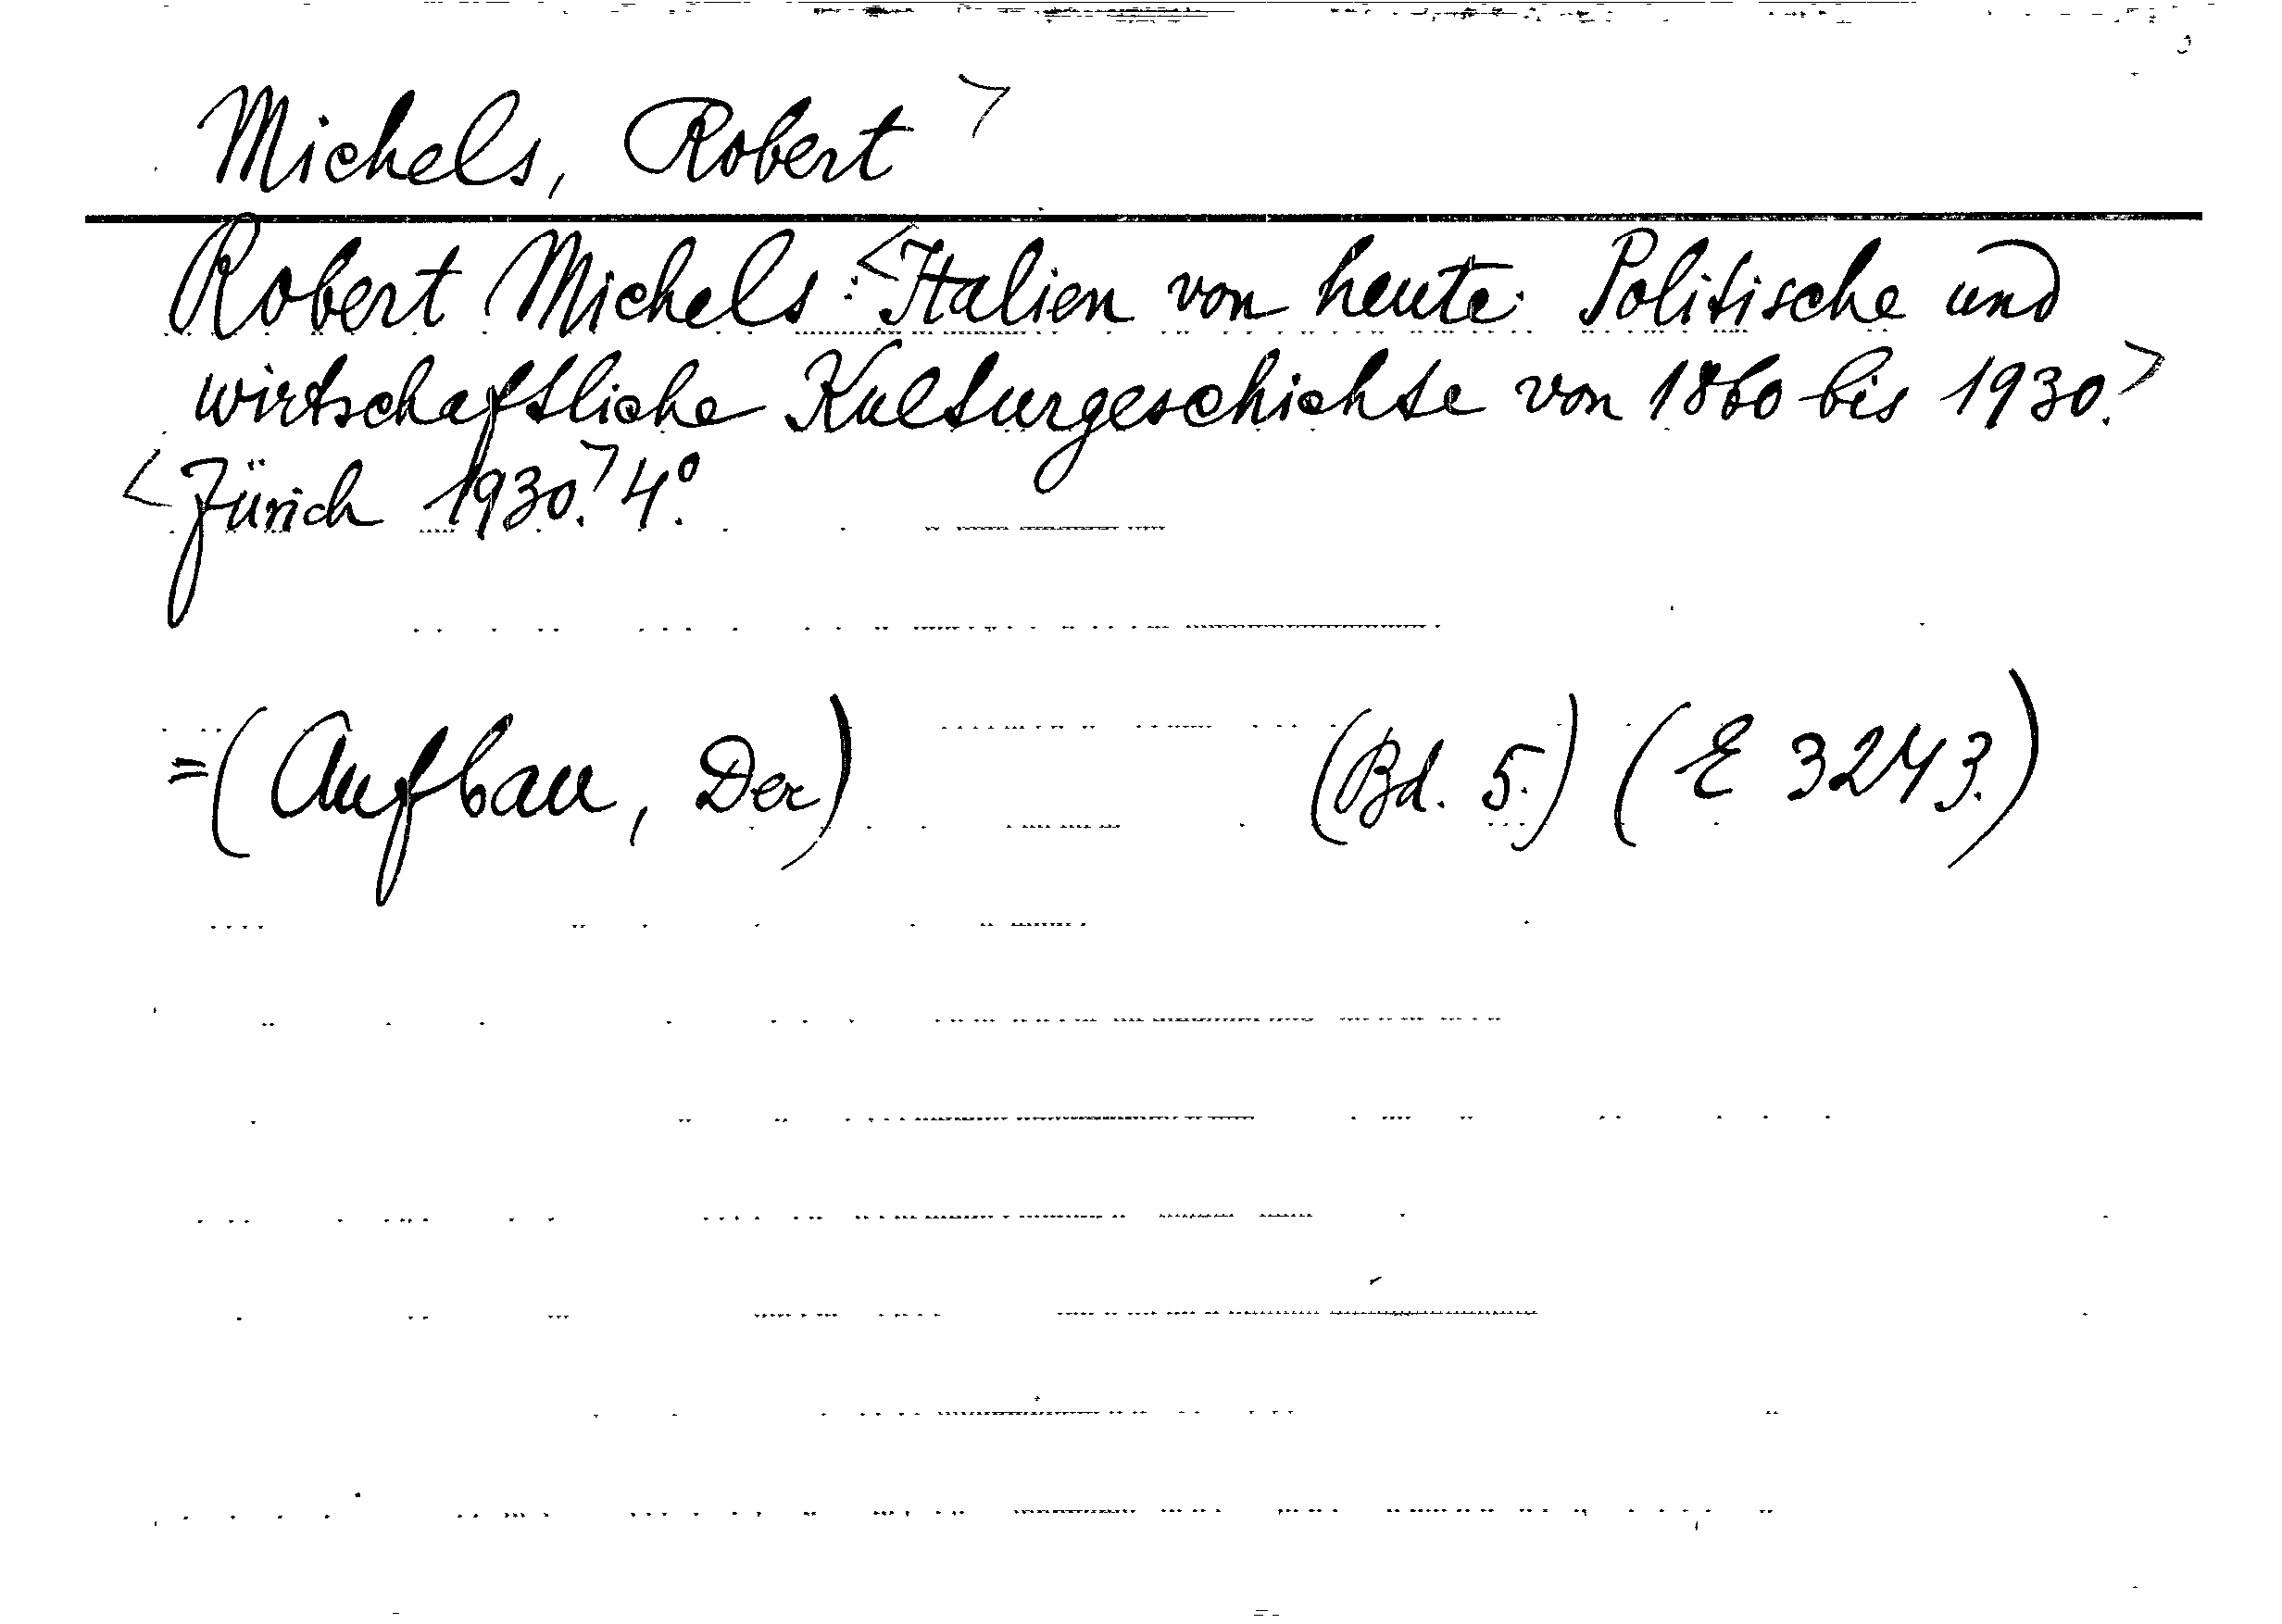 Michels, Robert>
Robert Michels: <Italien von heute. Politische und
wirtschaftliche Kulturgeschichte von 1860 bis 1930.>
<Zürich 1930.> 4°.
=(Aufbau, Der) (Bd. 5.) (E 3243.)